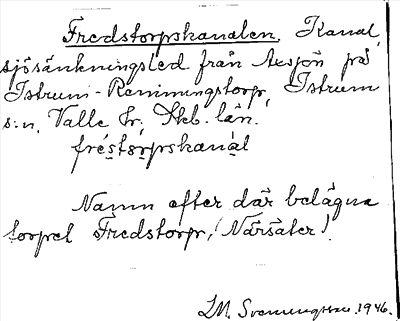 Fredstorpskanalen. Kanal,
sjösänkningsled från Axsjön på
Istrum-Remmingstorp, Istrum
s:n, Valle hr; Skb. län.
fréstorpskanàl
Namn efter där belägna
torpet Fredstorp, (Närsäter).
1946.